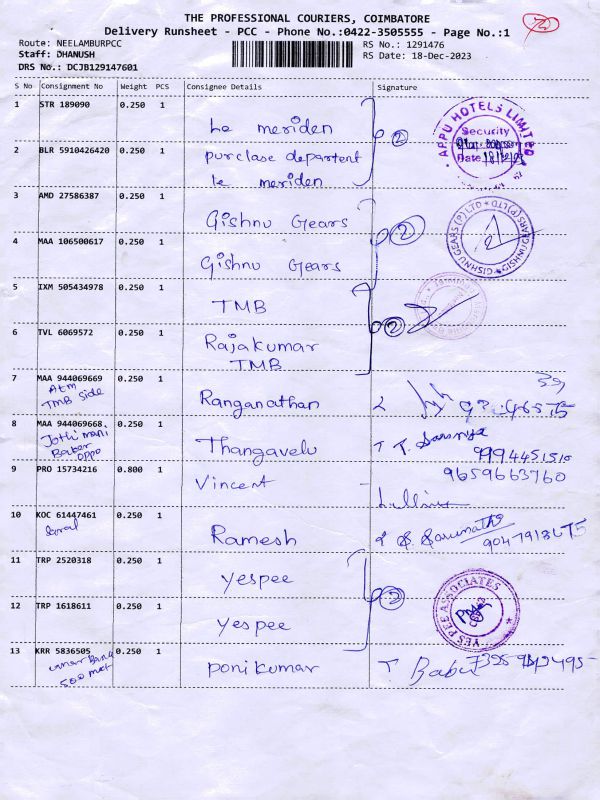 THE PROFESSIONAL COURIERS, COIMBATORE
Delivery Runsheet - PCC - Phone No.:0422-3505555 - Page No.:1
Route: NEELAMBURPCC
Staff: DHANUSH
DRS No.: DCJB129147601
RS No.: 1291476
RS Date: 18-Dec-2023
S No Consignment No Weight PCS Consignee Details Signature
1 STR 189090 0.250 1 Le meriden
2 BLR 5910426420 0.250 1 purclase departent
le meriden
2
APPU HOTELS LIMITED
Security
Date
3 AMD 27586387 0.250 1 Gishnu Gears
4 MAA 106500617 0.250 1 Gishnu Gears
2
GISHNU GEARS (P) LTD
5 IXM 505434978 0.250 1 TMB
6 TVL 6069572 0.250 1 Rajakumar
TMB
2
7 MAA 944069669 0.250 1 Ranganathan
Atm
TMB Side
8 MAA 944069668 0.250 1 Thangavelu
Jothi mani
Baker
oppo
T. Saranya
9994451510
9 PRO 15734216 0.800 1 Vincent
9659663760
10 KOC 61447461 0.250 1 Ramesh
11 TRP 2520318 0.250 1 yespee
12 TRP 1618611 0.250 1 yespee
2
YES PEE ASSOCIATES
13 KRR 5836505 0.250 1 ponikumar
500 mat
Babu